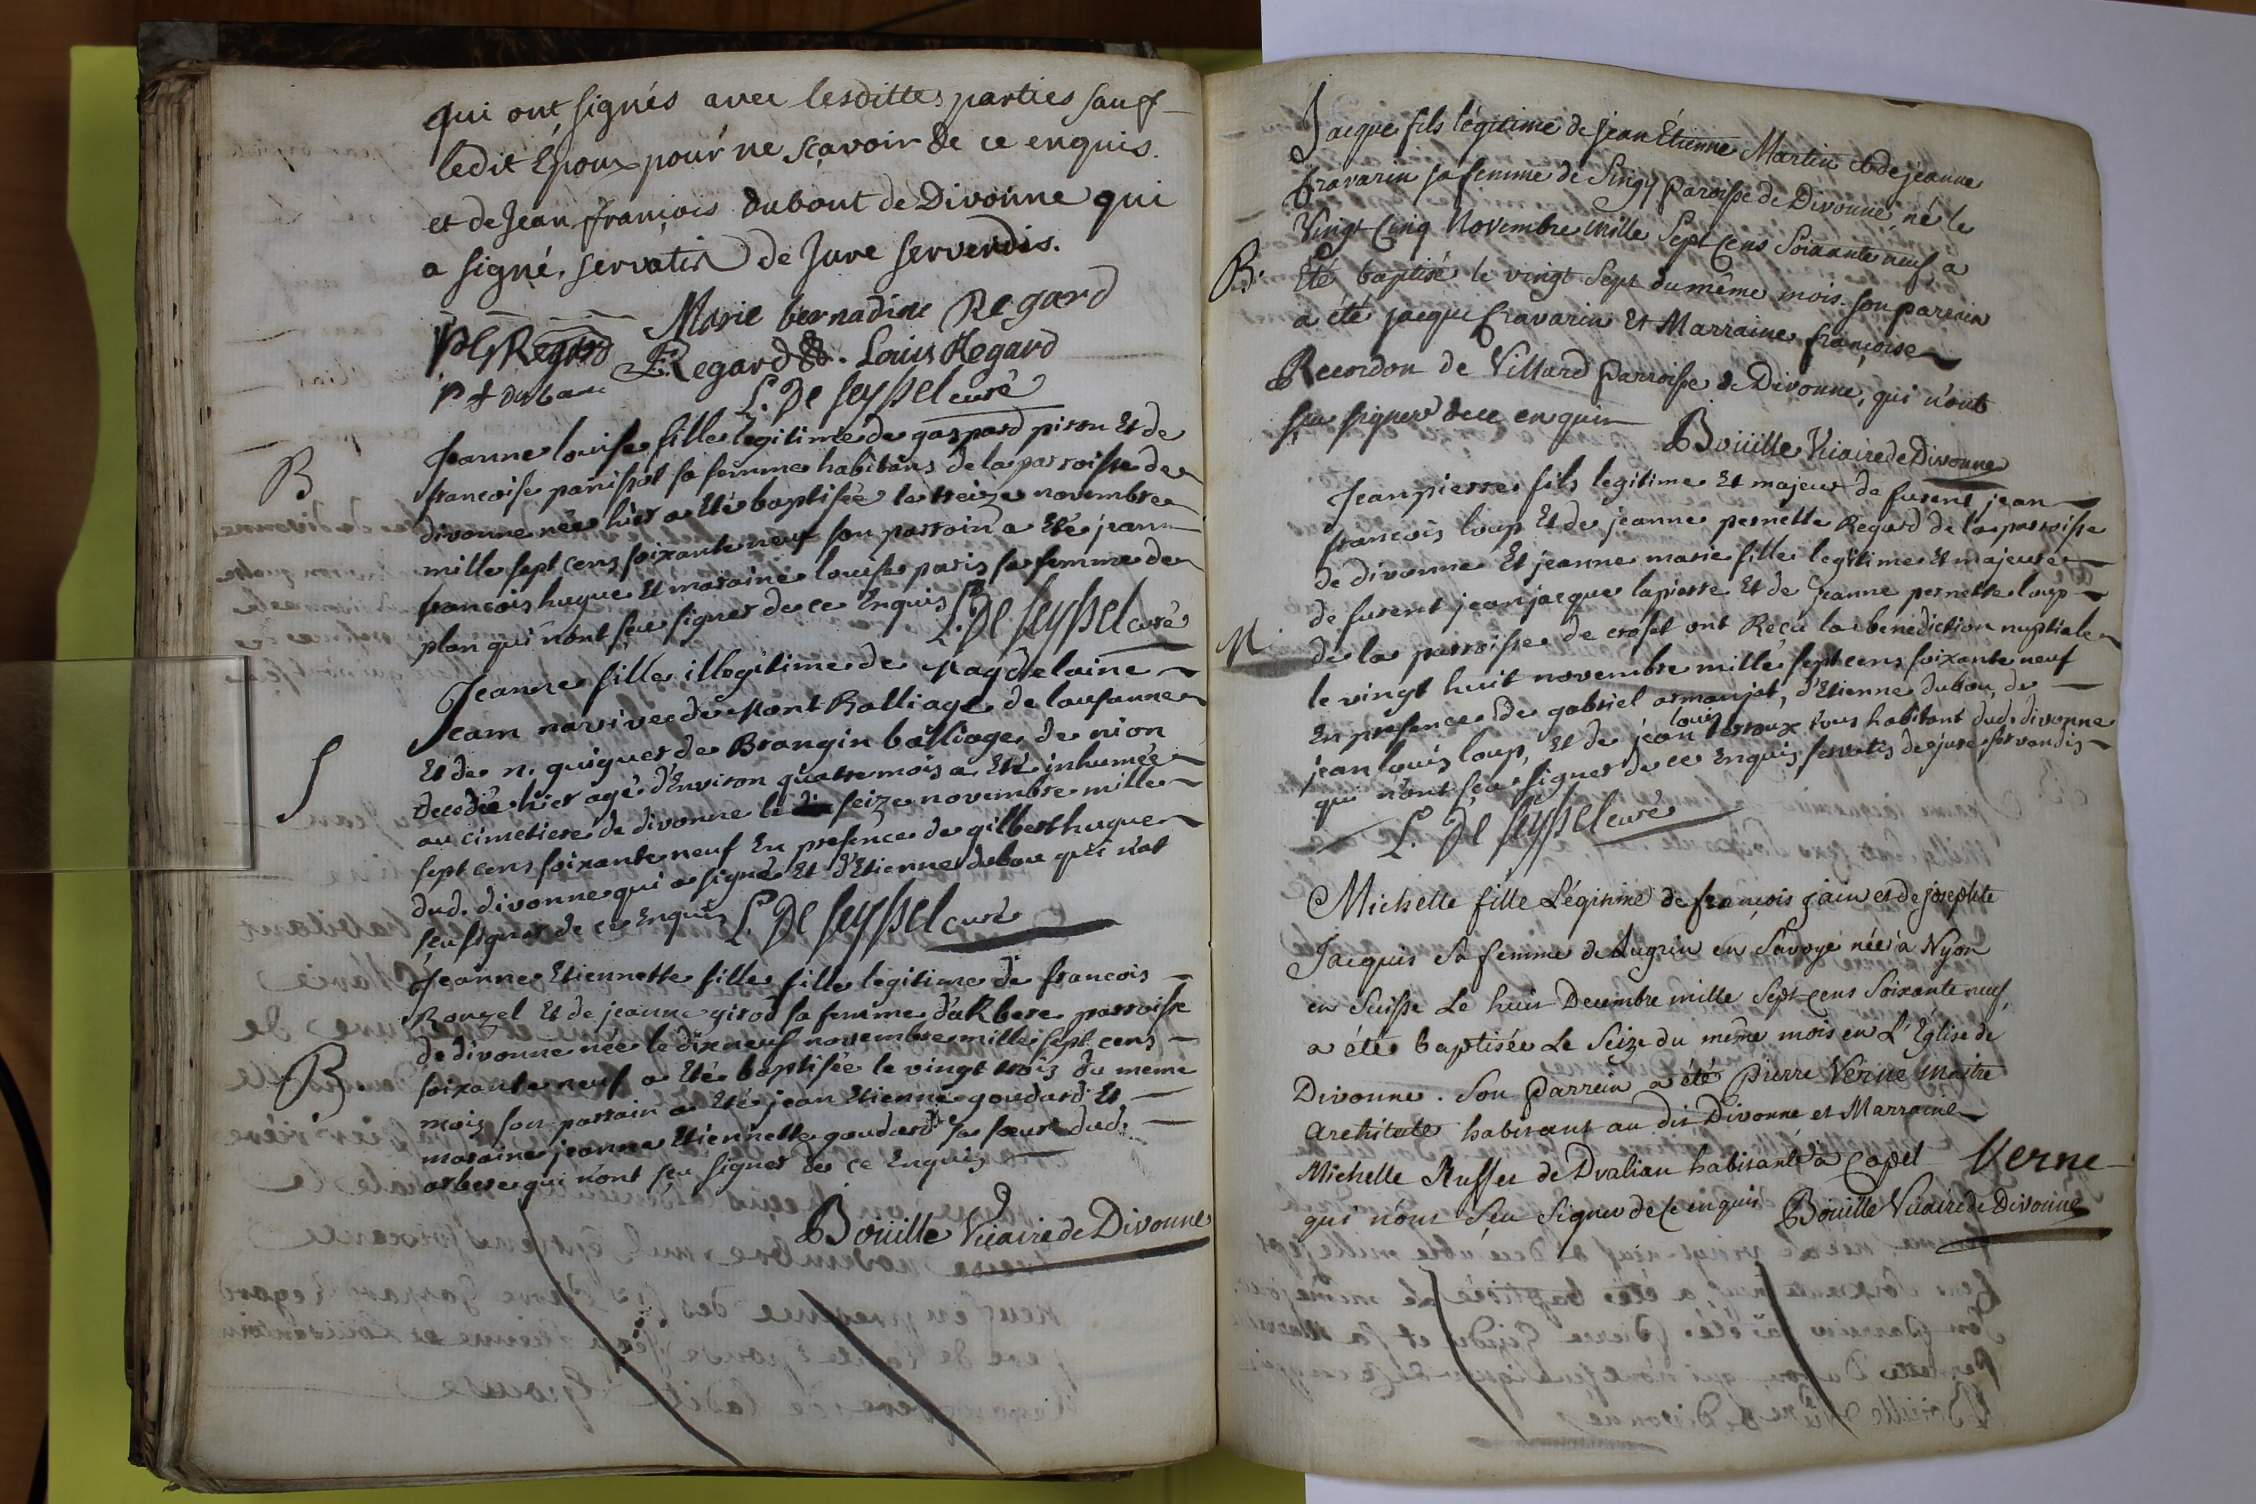 qui ont signés avec lesdittes parties sauf
ledit Epoux pour ne sçavoir de ce enquis.
et de Jean françois dubout de Divonne qui
a signé, servatis de Jure servendis.
Marie bernadine Regard
Regard Louis Regard
L. De seyssel curé
B
Jeanne louise fille legitime de gaspard piron Et de
francoise panissot sa femme habitans de la parroisse de
divonne née hier a Eté baptisée le treize novembre
mille sept cens soixante neuf son parrain a Eté jean
francois hugue Et maraine louise paris sa femme de
plan qui n'ont sçu signer de ce Enquis L. De seyssel curé
S
Jeanne fille illegitime de Magdelaine
Jeam narsivee de Mont Balliage de lausanne
Et de n. quiguer de Brangin balliage de nion
decedée hier agé d'Environ quatre mois a Eté inhumée
au cimetiere de divonne le seize novembre mille
sept cens soixante neuf En presence de gilbert hugue
dud. divonne qui a signé Et d'Etienne dubou qui n'at
sçu signer de ce Enquis L. De seyssel curé
B
Jeanne Etiennette fille fille legitime de francois
Rouzel Et de jeanne girod sa femme d'aRbere parroisse
de divonne née le dix neuf novembre mille sept cens
soixante neuf a Eté baptisée le vingt trois du meme
mois son parrain a Eté jean Etienne goudard Et
maraine jeanne Etiennette goudard sa sœur dud.
arbere qui n'ont sçu signer de ce Enquis
Boüille Vicaire de Divonne
Jacque fils légitime de Jean Étienne Martin et de jeanne
fravarin sa femme de Singy Paroisse de Divonne, né le
Vingt Cinq Novembre mille Sept Cens Soixante neuf a
B.
Eté baptisé le vingt Sept du même mois. son parrain
a été jacque fravarin Et Marraine françoise
Recordon de Villard Parroisse de Divonne, qui n'ont
sçu signer de ce enquis
Boüille Vicaire de Divonne
Jean pierre fils legitime Et majeur de furent jean
francois loup Et de jeanne pernette Regard de la parroisse
de divonne Et jeanne marie fille legitime Et majeure
de furent jean jacque lapierre Et de Jeanne pernette loup
M
de la parroisse de croset ont Reçu la benediction nuptiale
le vingt huit novembre mille sept cens soixante neuf
En presence de gabriel armanjat, d'Etienne dubou, de
jean louis loup, Et de jean louis terroux tous habitant dud. divonne
qui n'ont sçu signer de ce Enquis servatis de jure servandis
L. De seyssel curé
Michelle fille Légitime de françois jain et de josephte
Jacquis sa femme de Lugrin en Savoye née à Nyon
en Suisse Le huit Decembre mille Sept Cens Soixante neuf,
a été baptisée Le Seize du même mois en L'Eglise de
Divonne. Son Parrein a été Pierre Verne maitre
Architecte habitant au dit Divonne et Marraine
Michelle Russet de Dvalian habitante à Copet Verne
qui n'ont Sçu Signer de Ce enquis Boüille Vicaire de Divonne